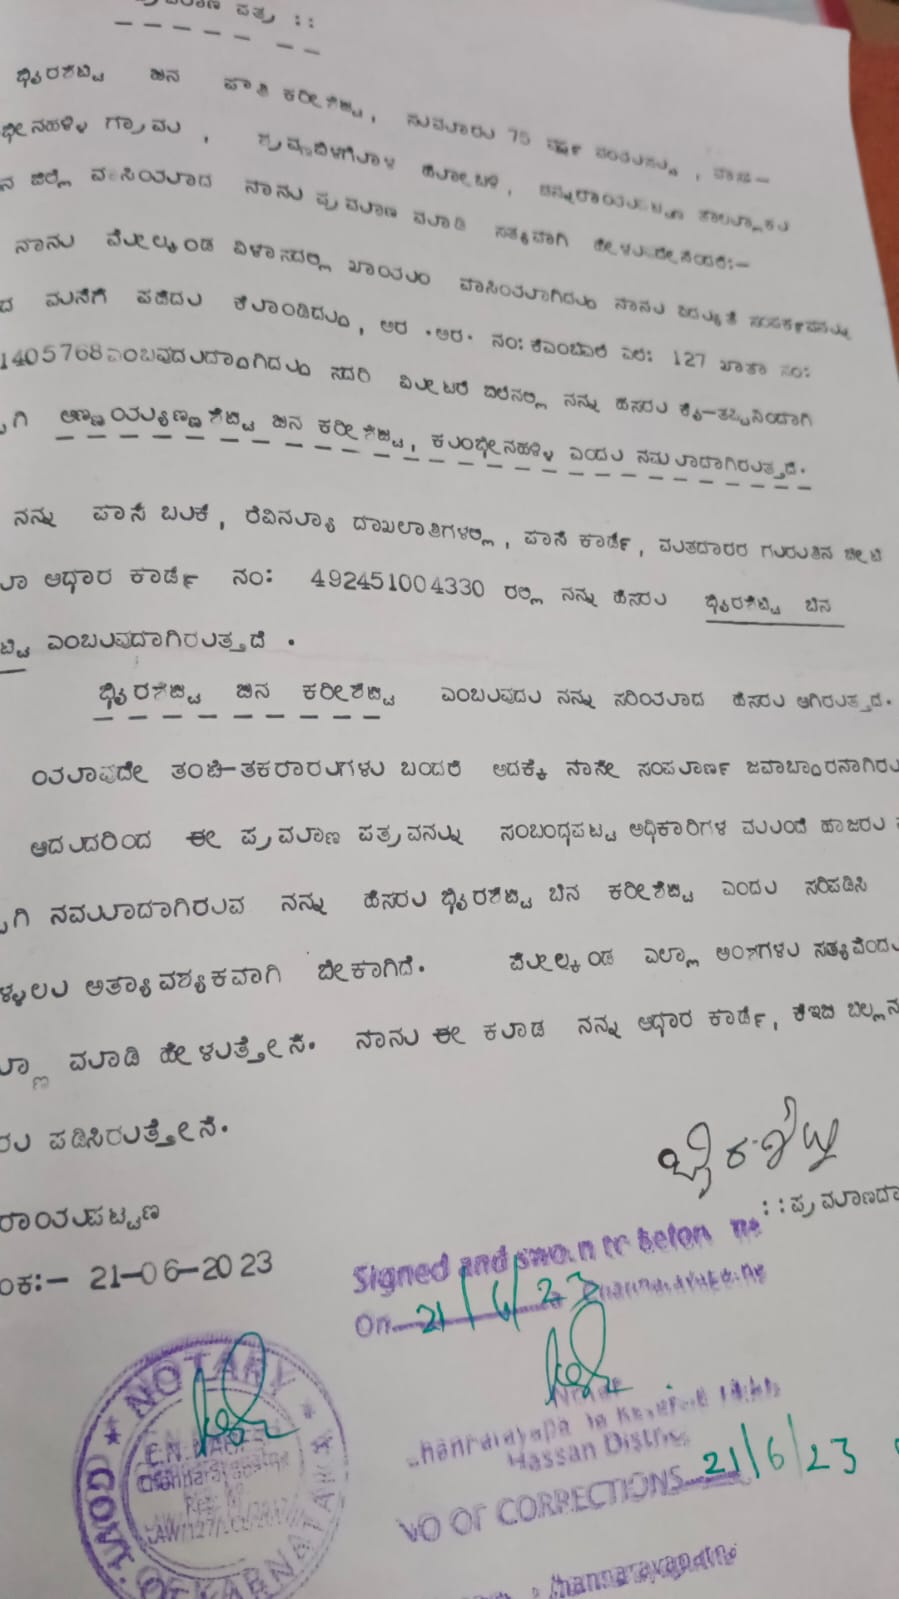 ಪ್ರಮಾಣ ಪತ್ರ ::
ಭೈರಶೆಟ್ಟಿ ಬಿನ ಕರೀಶೆಟ್ಟಿ, ಸುಮಾರು 75 ವರ್ಷ ವಾಸ-
ಗ್ರಾಮ, ಶ್ರವಣಬೆಳಗೊಳ ಹೋಬಳಿ, ಚನ್ನರಾಯಪಟ್ಟಣ ತಾಲ್ಲೂಕು
ನ ಜಿಲ್ಲೆ ವಾಸಿಯಾದ ನಾನು ಪ್ರಮಾಣ ಮಾಡಿ ಸತ್ಯವಾಗಿ ಹೇಳುವುದೇನೆಂದರೆ:-
ನಾನು ಮೇಲ್ಕಂಡ ವಿಳಾಸದಲ್ಲಿ ಖಾಯಂ ವಾಸಿಯಾಗಿದ್ದು ನಾನು ವಿದ್ಯುತ್ ಸಂಪರ್ಕವನ್ನು
ದ ಮನೆಗೆ ಪಡೆದು ಕೊಂಡಿದ್ದು, ಆರ್ .ಆರ್. ನಂ: ಕೆಎಂಬಿಎಲ್ ಎಲ್: 127 ಖಾತಾ ನಂ:
1405768ಎಂಬುವುದಾಗಿದ್ದು ಸದರಿ ಮೀಟರ್ ಬಿಲಿನಲ್ಲಿ ನನ್ನ ಹೆಸರು ಕೈ-ತಪ್ಪಿನಿಂದಾಗಿ
ಗಿ ಅಣ್ಣಯ್ಯಣ್ಣಶೆಟ್ಟಿ ಬಿನ ಕರೀಶೆಟ್ಟಿ, ಕುಂಭೇನಹಳ್ಳಿ ಎಂದು ನಮೂದಾಗಿರುತ್ತದೆ.
ನನ್ನ ಪಾಸ್ ಬುಕ್, ರೆವಿನ್ಯೂ ದಾಖಲಾತಿಗಳಲ್ಲಿ, ಪಾನ್ ಕಾರ್ಡ್, ಮತದಾರರ ಗುರುತಿನ ಚೀಟಿ
ಆಧಾರ ಕಾರ್ಡ್ ನಂ: 492451004330 ರಲ್ಲಿ ನನ್ನ ಹೆಸರು ಭೈರಶೆಟ್ಟಿ ಬಿನ
ಟ್ಟಿ ಎಂಬುವುದಾಗಿರುತ್ತದೆ .
ಭೈರಶೆಟ್ಟಿ ಬಿನ ಕರೀಶೆಟ್ಟಿ ಎಂಬುವುದು ನನ್ನ ಸರಿಯಾದ ಹೆಸರು ಆಗಿರುತ್ತದೆ.
ಯಾವುದೇ ತಂಟೆ-ತಕರಾರುಗಳು ಬಂದರೆ ಅದಕ್ಕೆ ನಾನೇ ಸಂಪೂರ್ಣ ಜವಾಬ್ದಾರನಾಗಿರು
ಆದುದರಿಂದ ಈ ಪ್ರಮಾಣ ಪತ್ರವನ್ನು ಸಂಬಂಧಪಟ್ಟ ಅಧಿಕಾರಿಗಳ ಮುಂದೆ ಹಾಜರು
ಗಿ ನಮೂದಾಗಿರುವ ನನ್ನ ಹೆಸರು ಭೈರಶೆಟ್ಟಿ ಬಿನ ಕರೀಶೆಟ್ಟಿ ಎಂದು ಸರಿಪಡಿಸಿ
ಳ್ಳಲು ಅತ್ಯಾವಶ್ಯಕವಾಗಿ ಬೇಕಾಗಿದೆ. ಮೇಲ್ಕಂಡ ಎಲ್ಲಾ ಅಂಶಗಳು ಸತ್ಯವೆಂದು
ಮಾಡಿ ಹೇಳುತ್ತೇನೆ. ನಾನು ಈ ಕೂಡ ನನ್ನ ಆಧಾರ ಕಾರ್ಡ್, ಕೆಇಬಿ ಬಿಲ್ಲನ
ರು ಪಡಿಸಿರುತ್ತೇನೆ.
ಭೈರಶೆಟ್ಟಿ
ರಾಯಪಟ್ಟಣ
::ಪ್ರಮಾಣದಾ
ಂಕ:- 21-06-2023
Signed and sworn to before me
On 21/6/23
NOTARY
GOVT. OF KARNATAKA
Hassan District
NO OF CORRECTIONS 21/6/23